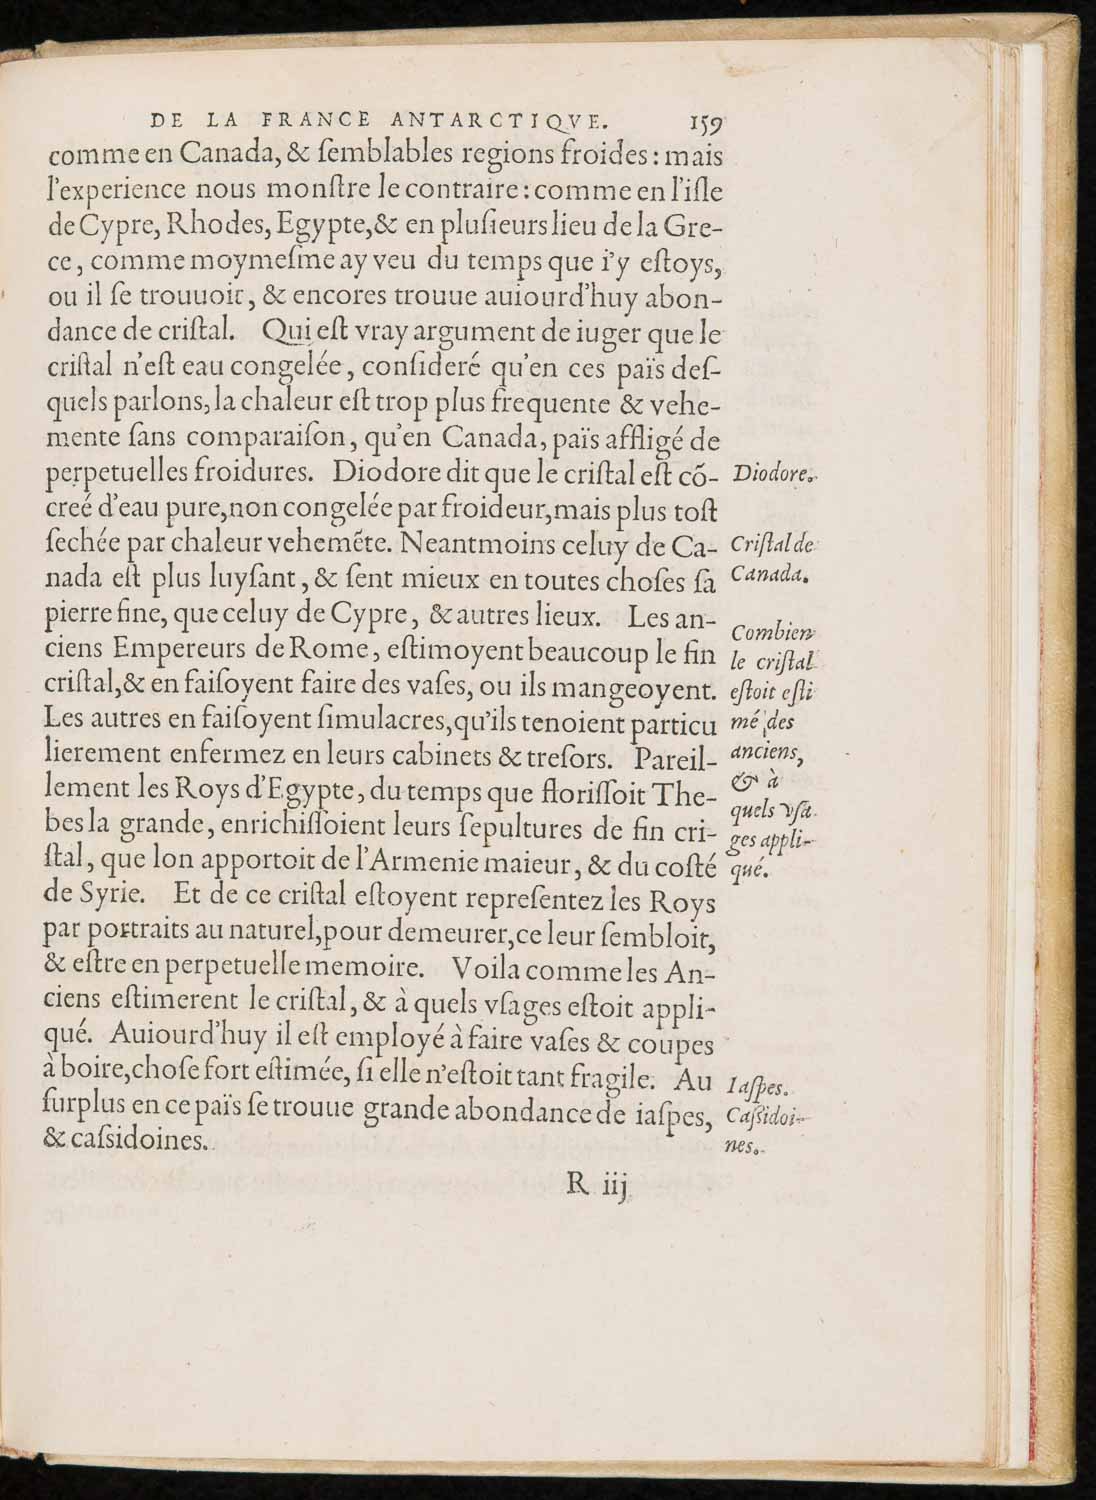 DE LA FRANCE ANTARCTIQVE. 159
comme en Canada, & ſemblables regions froides : mais
l'experience nous monſtre le contraire : comme en l'iſle
de Cypre, Rhodes, Egypte, & en pluſieurs lieu de la Gre-
ce, comme moymeſme ay veu du temps que i'y eſtoys,
ou il ſe trouuoit, & encores trouue auiourd'huy abon-
dance de criſtal. Qui eſt vray argument de iuger que le
criſtal n'eſt eau congelée, conſideré qu'en ces païs deſ-
quels parlons, la chaleur eſt trop plus frequente & vehe-
mente ſans comparaiſon, qu'en Canada, païs affligé de
perpetuelles froidures. Diodore dit que le criſtal eſt cõ-
creé d'eau pure, non congelée par froideur, mais plus toſt
ſechée par chaleur vehemẽte. Neantmoins celuy de Ca-
nada eſt plus luyſant, & ſent mieux en toutes choſes ſa
pierre fine, que celuy de Cypre, & autres lieux. Les an-
ciens Empereurs de Rome, eſtimoyent beaucoup le fin
criſtal, & en faiſoyent faire des vaſes, ou ils mangeoyent.
Les autres en faiſoyent ſimulacres, qu'ils tenoient particu
lierement enfermez en leurs cabinets & treſors. Pareil-
lement les Roys d'Egypte, du temps que floriſſoit The-
bes la grande, enrichiſſoient leurs ſepultures de fin cri-
ſtal, que lon apportoit de l'Armenie maieur, & du coſté
de Syrie. Et de ce criſtal eſtoyent repreſentez les Roys
par portraits au naturel, pour demeurer, ce leur ſembloit,
& eſtre en perpetuelle memoire. Voila comme les An-
ciens eſtimerent le criſtal, & à quels vſages eſtoit appli-
qué. Auiourd'huy il eſt employé à faire vaſes & coupes
à boire, choſe fort eſtimée, ſi elle n'eſtoit tant fragile. Au
ſurplus en ce païs ſe trouue grande abondance de iaſpes,
& caſsidoines.
R iij
Diodore.
Criſtal de
Canada.
Combien
le criſtal
eſtoit eſti
mé des
anciens,
& à
quels vſa-
ges appli-
qué.
Iaſpes.
Caſsidoi-
nes.